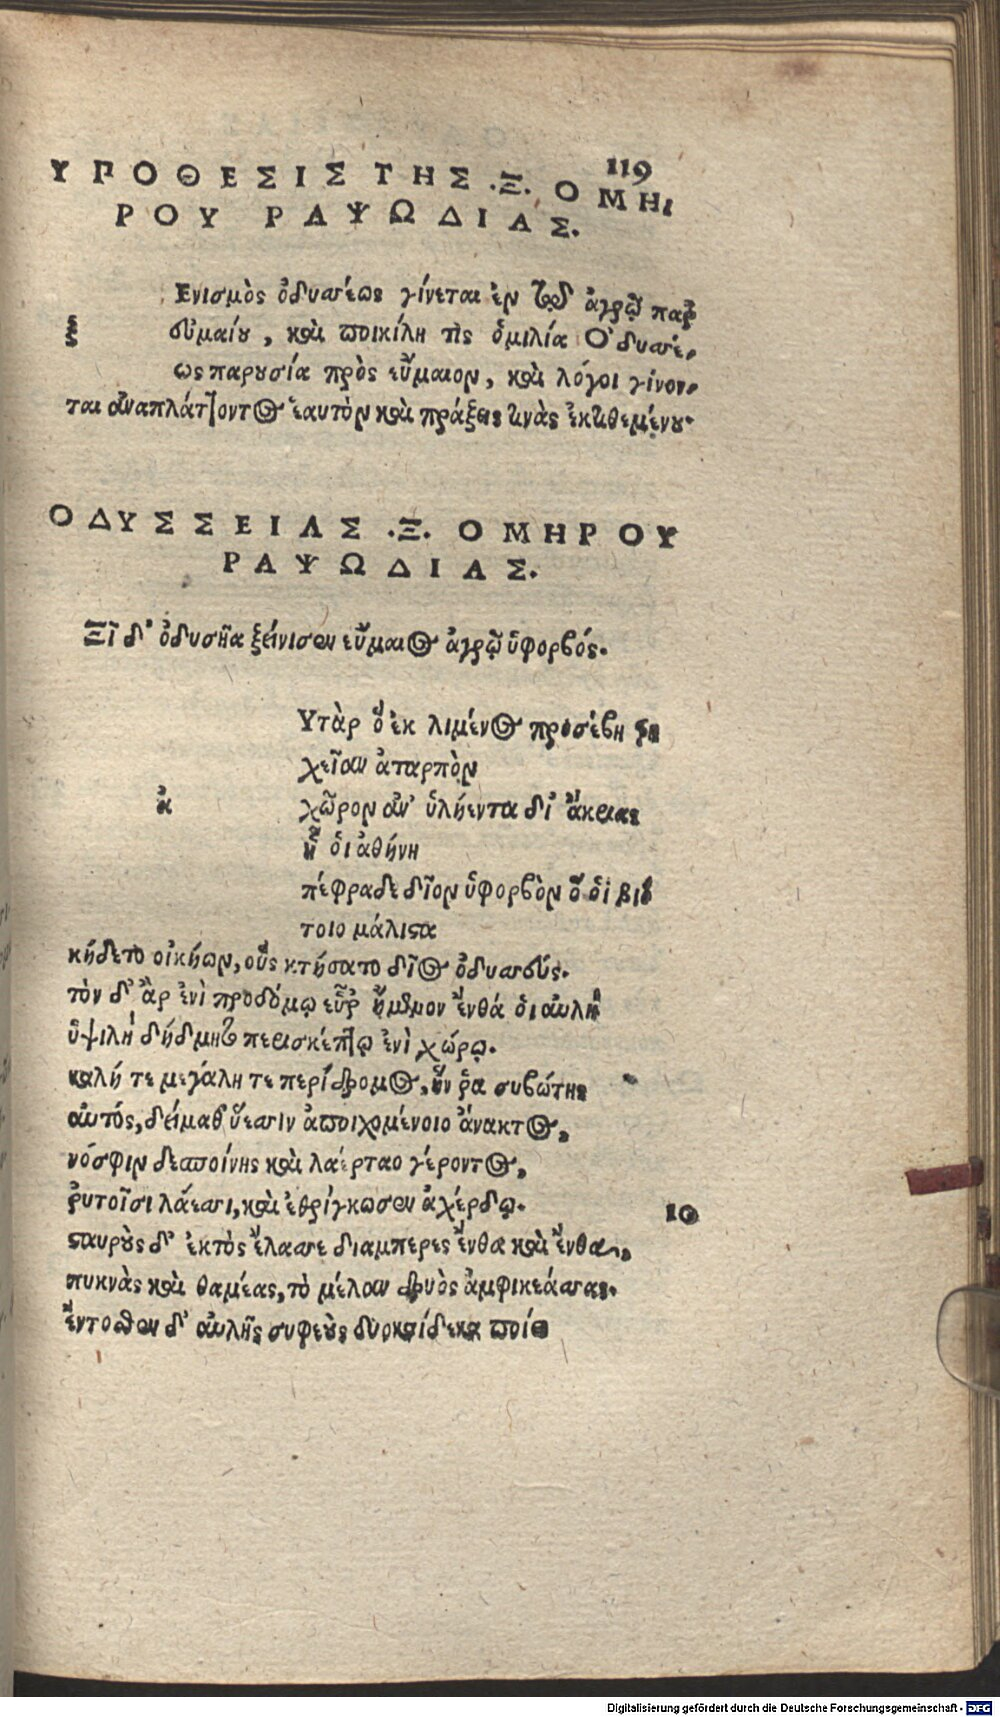 119
ΥΠΟΘΕΣΙΣ ΤΗΣ .Ξ. ΟΜΗ
ΡΟΥ ΡΑΨΩΔΙΑΣ.
ξ
Ενισμὸς ὀδυσσέως γίνεται ἐν τῷ ἀγρῷ παρ
εὐμαίου, καὶ ποικίλη τὶς ὁμιλία Ὀδυσσέ-
ως παρουσία πρὸς εὔμαιον, καὶ λόγοι γίνον-
ται ἀναπλάττοντος ἑαυτὸν καὶ πράξεις τινὰς ἐκτιθεμένου.
ΟΔΥΣΣΕΙΑΣ .Ξ. ΟΜΗΡΟΥ
ΡΑΨΩΔΙΑΣ.
Ξῖ δ' ὀδυσῆα ξείνισεν εὔμαιος ἀγρῷ ὑφορβός.
ἀ
Υτὰρ ὅ ἐκ λιμένος προσέβη τρη
χεῖαν ἀταρπὸν
χῶρον ἀν' ὑλήεντα δι' ἄκριας
ᾗ ὁι ἀθήνη
πέφραδε δῖον ὑφορβὸν ὅ ὁι βιό
τοιο μάλιστα
κήδετο οἰκήων, οὓς κτήσατο δῖος ὀδυσσεύς.
τὸν δ' ἂρ ἐνὶ προδόμῳ εὗρ ἥμενον ἔνθά ὁι αὐλὴ
ὑψιλὴ δέδμητο περισκέπτῳ ἐνὶ χώρῳ.
καλή τε μεγάλη τε περίδρομος, ἥν ῥα συβώτης
αὐτός, δείμαθ' ὕεσσιν ἀποιχομένοιο ἄνακτος,
νόσφιν δεσποίνης καὶ λαέρταο γέροντος,
ῥυτοῖσι λάεσσι, καὶ ἐθρίγκωσεν ἀχέρδῳ. 10
σταυροὺς δ' ἐκτὸς ἔλασσε διαμπερες ἔνθα καὶ ἔνθα,
πυκνὰς καὶ θαμέας, τὸ μέλαν δρυὸς ἀμφικεάσσας.
ἔντοσθεν δ' αὐλῆς συφεοὺς δυοκαίδεκα ποίει
Digitalisierung gefördert durch die Deutsche Forschungsgemeinschaft - DFG